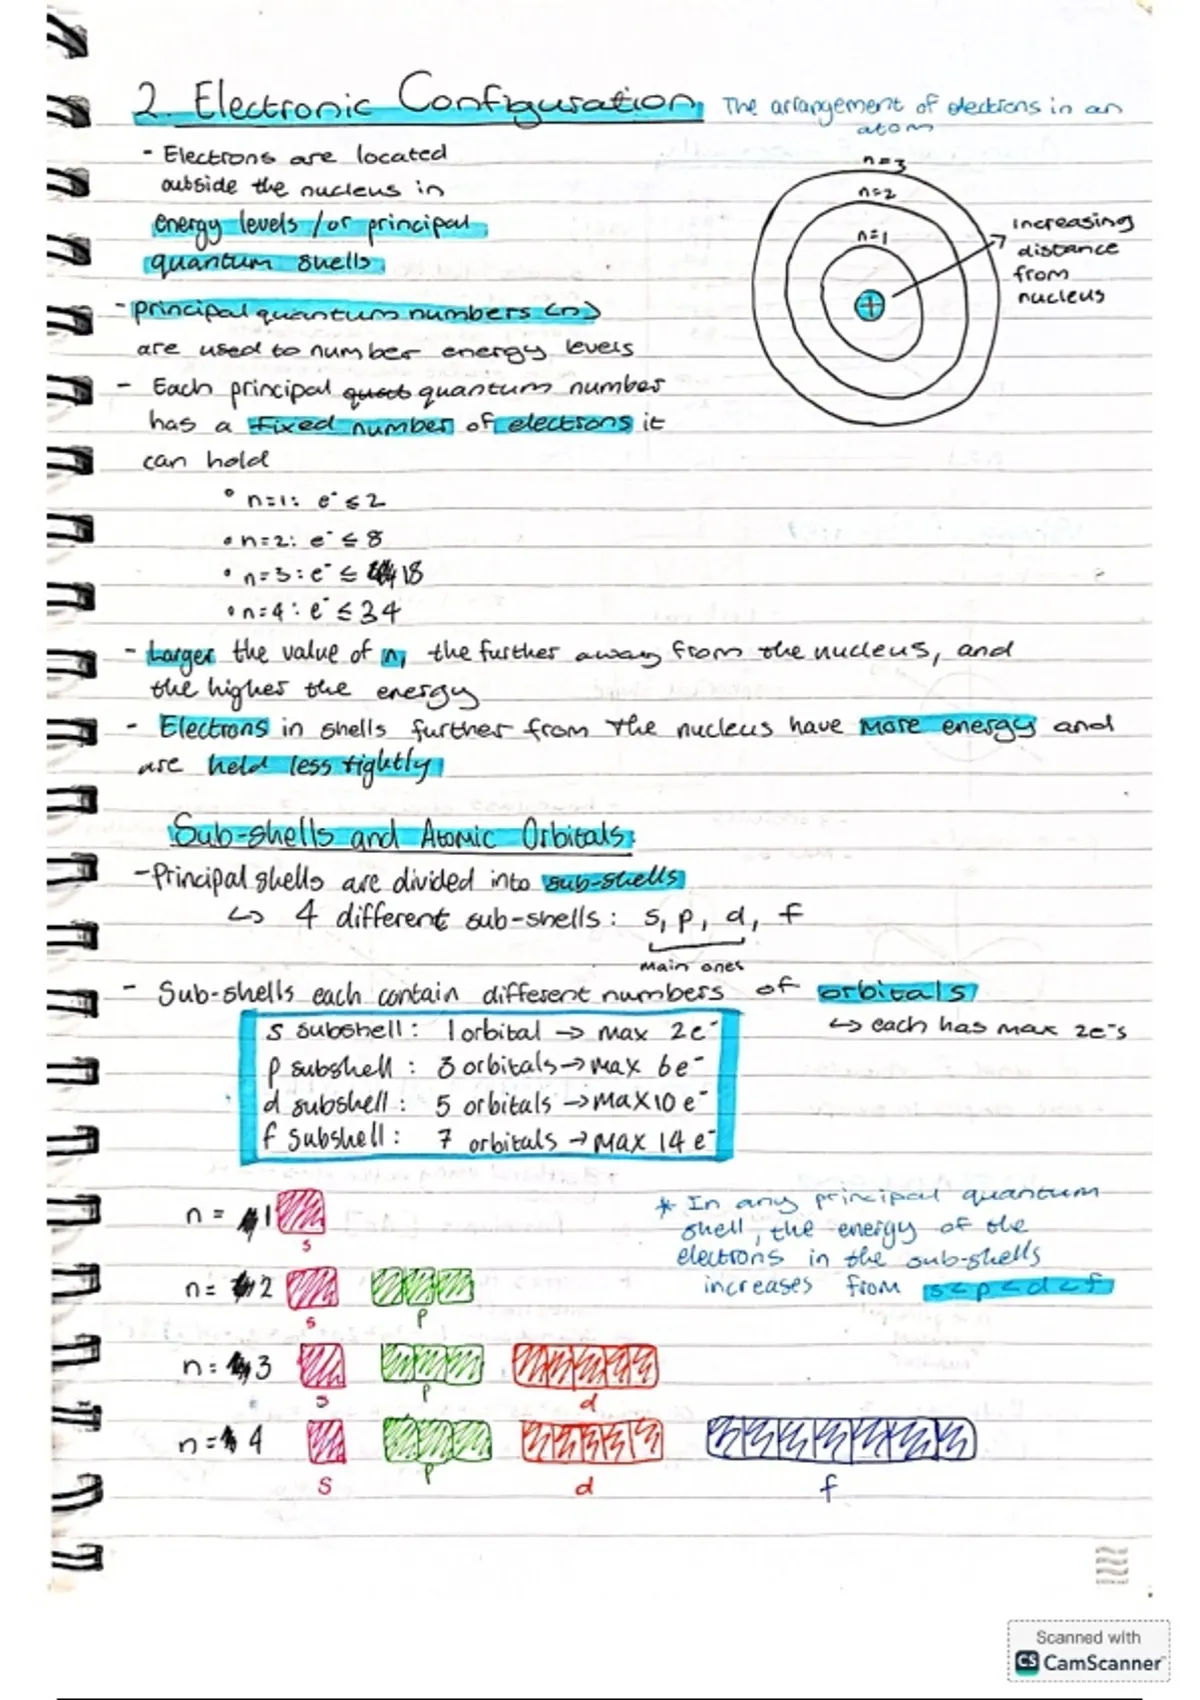 2. Electronic Configuration The arrangement of electrons in an
atom
- Electrons are located
outside the nucleus in
energy levels / or principal
quantum shells
n=3
n=2
n=1
+
increasing
distance
from
nucleus
- principal quantum numbers (n)
are used to number energy levels
- Each principal quantum number
has a fixed number of electrons it
can hold
• n=1: e⁻ ≤ 2
• n=2: e⁻ ≤ 8
• n=3: e⁻ ≤ 18
• n=4: e⁻ ≤ 34
- Larger the value of n, the further away from the nucleus, and
the higher the energy
- Electrons in shells further from the nucleus have more energy and
are held less tightly
Sub-shells and Atomic Orbitals:
- Principal shells are divided into sub-shells
↳ 4 different sub-shells: s, p, d, f
main ones
- Sub-shells each contain different numbers of orbitals
↳ each has max 2e⁻s
s subshell: 1 orbital → max 2e⁻
p subshell: 3 orbitals → max 6e⁻
d subshell: 5 orbitals → max 10 e⁻
f subshell: 7 orbitals → max 14 e⁻
* In any principal quantum
shell, the energy of the
electrons in the sub-shells
increases from s<p<d<f
n = 1
s
n = 2
s p
n = 3
s p d
n = 4
s p d f
Scanned with
CS CamScanner